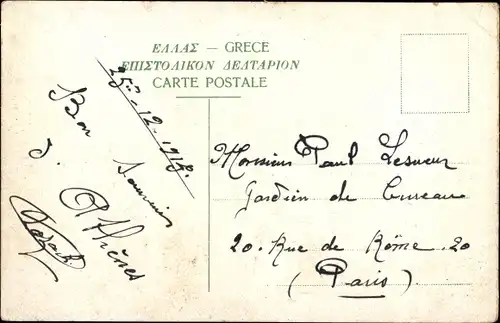 ΕΛΛΑΣ — GRECE
ΕΠΙΣΤΟΛΙΚΟΝ ΔΕΛΤΑΡΙΟΝ
CARTE POSTALE
25-12-1918.
Bon souvenir
d'Athènes
Monsieur Paul Lesueur
Gardien de bureau
20. Rue de Rome. 20
(Paris)